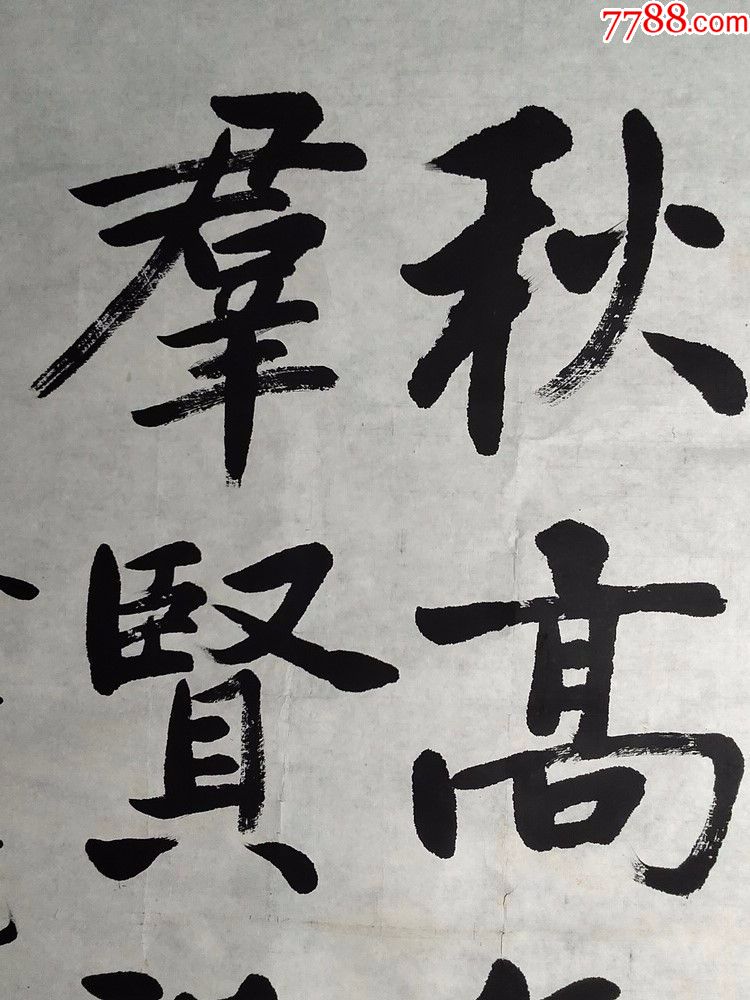 7788.com
秋髙
羣賢